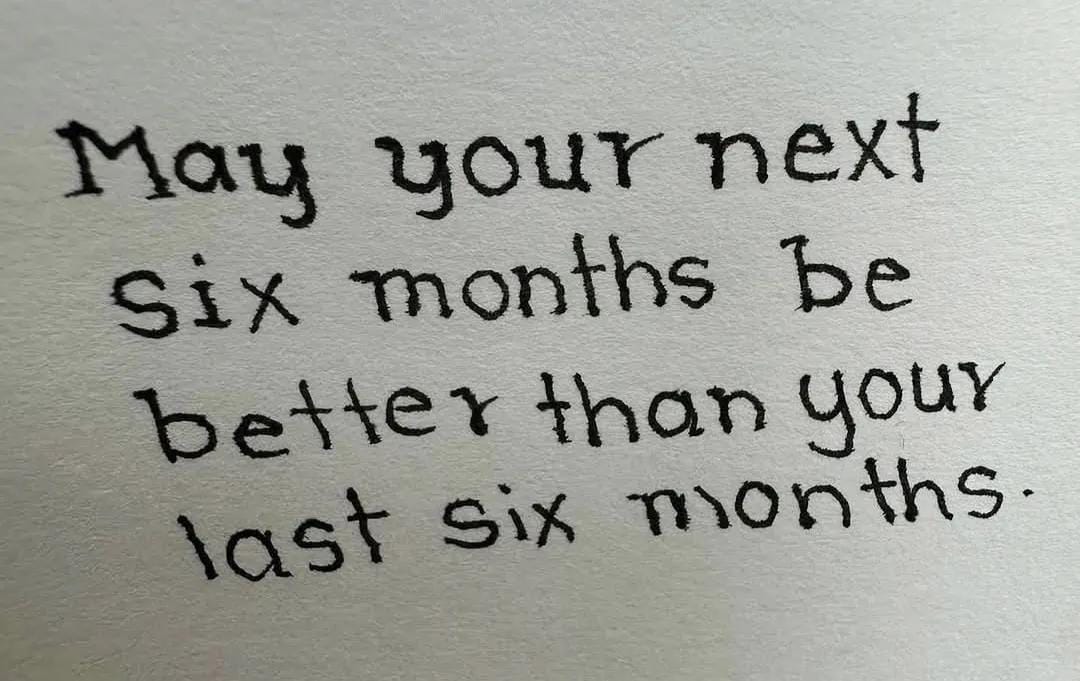 May your next
six months be
better than your
last six months.